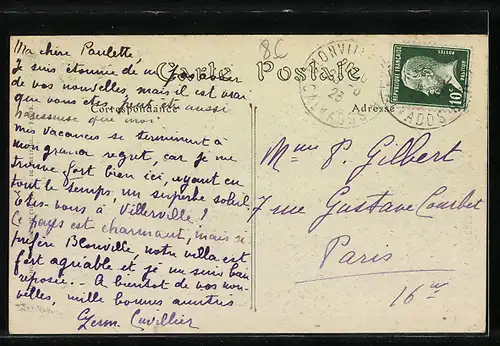 8C
Carte Postale
Correspondance
Adresse
REPUBLIQUE FRANÇAISE
POSTES
10c
CALVADOS
Ma chère Paulette,
Je suis étonnée de ne pas avoir
de vos nouvelles, mais il est vrai
que vous êtes et aussi
paresseuse que moi
mes vacances se terminent à
mon grand regret, car je me
trouve fort bien ici, ayant eu
tout le temps, un superbe soleil
Êtes-vous à Villerville?
Ce pays est charmant, mais je
préfère Blonville, notre villa est
fort agréable et je me suis bien
reposée. - A bientôt de vos nou-
velles, mille bonnes amitiés
Germ. Cuvillier
Mme P. Gilbert
7 rue Gustave Courbet
Paris
16me